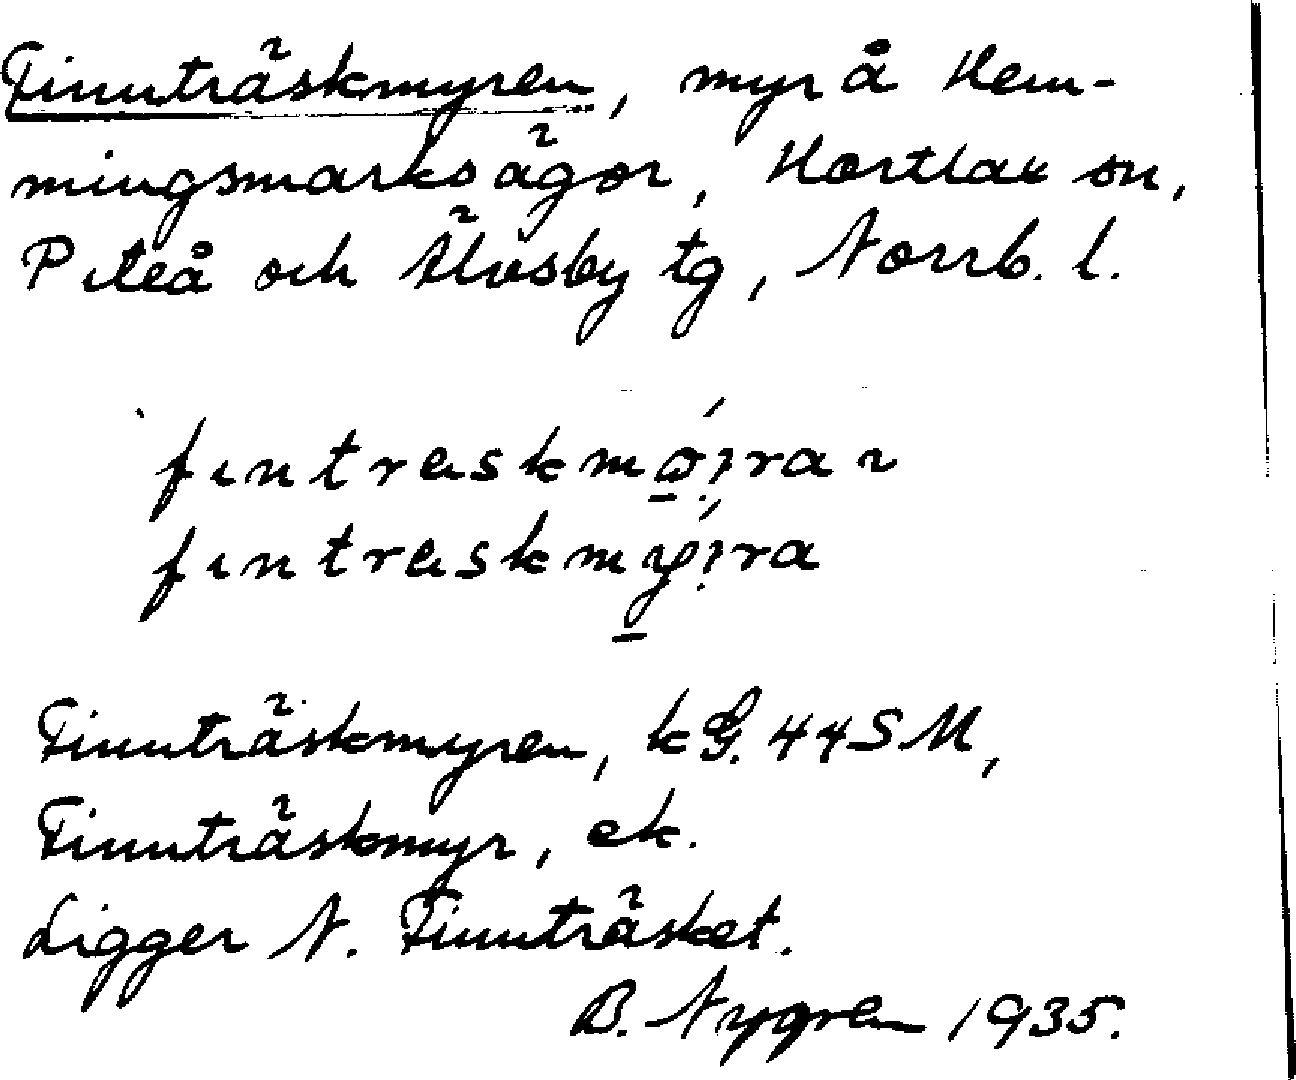 Finnträskmyren, myr å Hem-
mingsmarks ägor, Hortlax sn,
Piteå och Älvsby tg, Norrb. l.
fıntraskmø̱:́ran
fıntraskmy̱:́ra
Finnträskmyren, kG. 44SM,
Finnträskmyr, ek.
Ligger N. Finnträsket.
B. Nygren 1935.